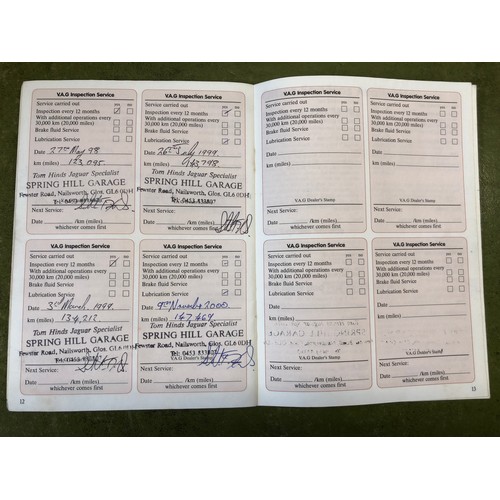 V.A.G Inspection Service
Service carried out yes no
Inspection every 12 months
With additional operations every
30,000 km (20,000 miles)
Brake fluid Service
Lubrication Service
Date 27th May 98
km (miles) 123,095
Tom Hinds Jaguar Specialist
SPRING HILL GARAGE
Fewster Road, Nailsworth, Glos. GL6 0DH
Next Service:
Date /km (miles)
whichever comes first
V.A.G Inspection Service
Service carried out yes no
Inspection every 12 months
With additional operations every
30,000 km (20,000 miles)
Brake fluid Service
Lubrication Service
Date 26th July 1999
km (miles)
Tom Hinds Jaguar Specialist
SPRING HILL GARAGE
Fewster Road, Nailsworth, Glos. GL6 0DH
Tel: 0453 833807
Next Service:
Date /km (miles)
whichever comes first
V.A.G Inspection Service
Service carried out yes no
Inspection every 12 months
With additional operations every
30,000 km (20,000 miles)
Brake fluid Service
Lubrication Service
Date 3rd March 1999
km (miles) 134,212
Tom Hinds Jaguar Specialist
SPRING HILL GARAGE
Fewster Road, Nailsworth, Glos. GL6 0DH
Next Service:
Date /km (miles)
whichever comes first
12
V.A.G Inspection Service
Service carried out yes no
Inspection every 12 months
With additional operations every
30,000 km (20,000 miles)
Brake fluid Service
Lubrication Service
Date 9th November 2000
km (miles) 147,469
Tom Hinds Jaguar Specialist
SPRING HILL GARAGE
Fewster Road, Nailsworth, Glos. GL6 0DH
Tel: 0453 833807
V.A.G Dealer's Stamp
Next Service:
Date /km (miles)
whichever comes first
V.A.G Inspection Service
Service carried out yes no
Inspection every 12 months
With additional operations every
30,000 km (20,000 miles)
Brake fluid Service
Lubrication Service
Date
km (miles)
V.A.G Dealer's Stamp
Next Service:
Date /km (miles)
whichever comes first
V.A.G Inspection Service
Service carried out yes no
Inspection every 12 months
With additional operations every
30,000 km (20,000 miles)
Brake fluid Service
Lubrication Service
Date
km (miles)
V.A.G Dealer's Stamp
Next Service:
Date /km (miles)
whichever comes first
V.A.G Inspection Service
Service carried out yes no
Inspection every 12 months
With additional operations every
30,000 km (20,000 miles)
Brake fluid Service
Lubrication Service
Date
km (miles)
V.A.G Dealer's Stamp
Next Service:
Date /km (miles)
whichever comes first
V.A.G Inspection Service
Service carried out yes no
Inspection every 12 months
With additional operations every
30,000 km (20,000 miles)
Brake fluid Service
Lubrication Service
Date
km (miles)
V.A.G Dealer's Stamp
Next Service:
Date /km (miles)
whichever comes first
13